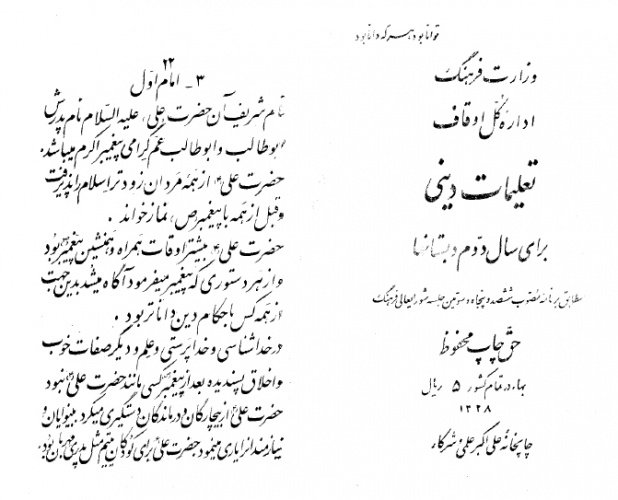 توانا بود هر که دانا بود
وزارت فرهنگ
اداره کل اوقاف
تعلیمات دینی
برای سال دوم دبستانها
مطابق برنامه مصوب ششصد و پنجاه و سومین جلسه شورایعالی فرهنگ
حق چاپ محفوظ
بهاء در تمام کشور ۵ ریال
۱۳۲۸
چاپخانه علی اکبر علمی و شرکاء
۲۲
۳ - امام اول
نام شریف آن حضرت علی، علیه السلام نام پدرش
ابوطالب و ابوطالب عم گرامی پیغمبر اکرم میباشد.
حضرت علی ع از همه مردان زودتر اسلام را پذیرفت
و قبل از همه با پیغمبر ص، نماز خواند.
حضرت علی ع بیشتر اوقات همراه و همنشین پیغمبر بود
و از هر دستوری که پیغمبر میفرمود آگاه میشد بدین جهت
از همه کس باحکام دین داناتر بود.
در خداشناسی و خداپرستی و علم و دیگر صفات خوب
و اخلاق پسندیده بعد از پیغمبر کسی مانند حضرت علی نبود
حضرت علی از بیچارگان و درماندگان دستگیری میکرد. بینوایان و
نیازمندانرا یاری مینمود حضرت علی برای کودکان یتیم مثل پدری مهربان بود.